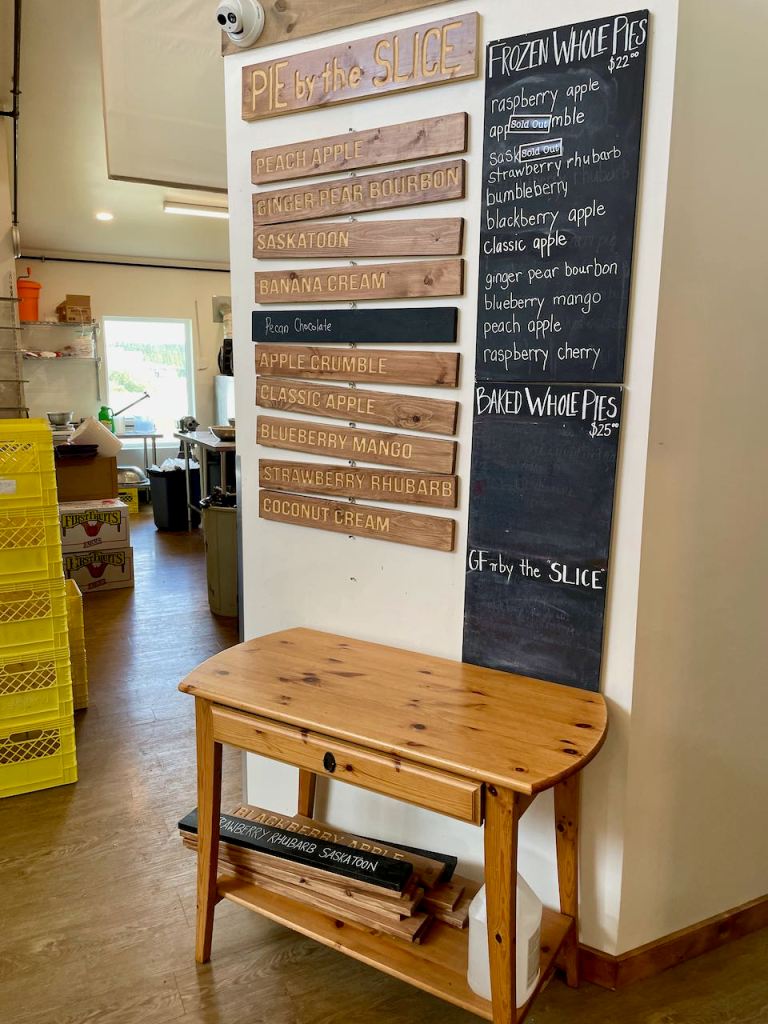 PIE by the SLICE
PEACH APPLE
GINGER PEAR BOURBON
SASKATOON
BANANA CREAM
Pecan Chocolate
APPLE CRUMBLE
CLASSIC APPLE
BLUEBERRY MANGO
STRAWBERRY RHUBARB
COCONUT CREAM
FROZEN WHOLE PIES
$22.00
raspberry apple
app Sold Out mble
sask Sold Out
strawberry rhubarb
bumbleberry
blackberry apple
classic apple
ginger pear bourbon
blueberry mango
peach apple
raspberry cherry
BAKED WHOLE PIES
$25.00
GF π by the "SLICE"
FIRSTFRUITS
FIRSTFRUITS
BLACKBERRY APPLE
RAWBERRY RHUBARB SASKATOON